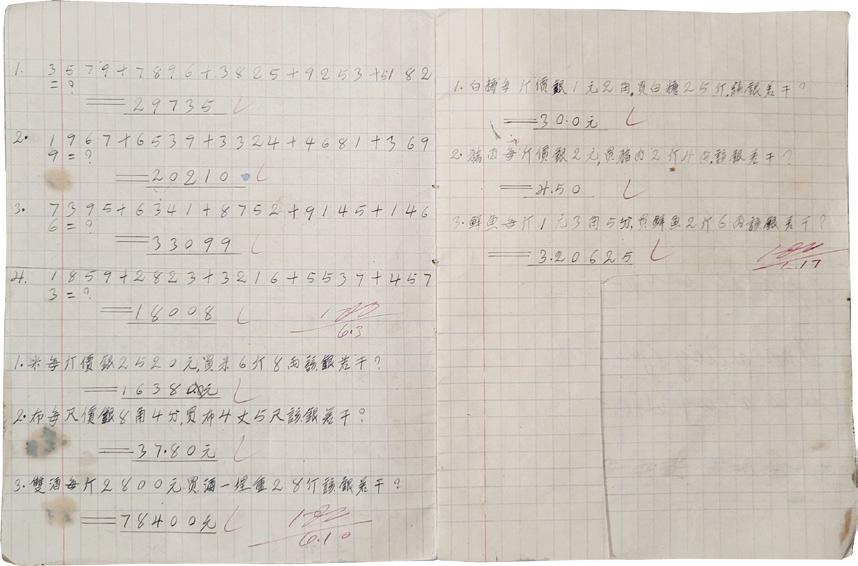 1. 3579+7896+3825+9253+5182
=?
29735
2. 1967+6539+3324+4681+369
9=?
20210
3. 7395+6341+8752+9145+146
6=?
33099
4. 1859+2823+3216+5537+457
3=?
18008
100
6.3
1.米每斤價銀2520元,買米6斤8両該銀若干?
16380元
2.布每尺價銀8角4分,買布4丈5尺該銀若干?
37.80元
3.雙酒每斤2800元買酒一埕重28斤該銀若干?
78400元
100
6.10
1.白糖每斤價銀1元2角,買白糖25斤,該銀若干?
30.0元
2.豬肉每斤價銀2元,買豬肉2斤4両,該銀若干?
4.50
3.鮮魚每斤1元3角5分,買鮮魚2斤6両該銀若干?
3.20625
100